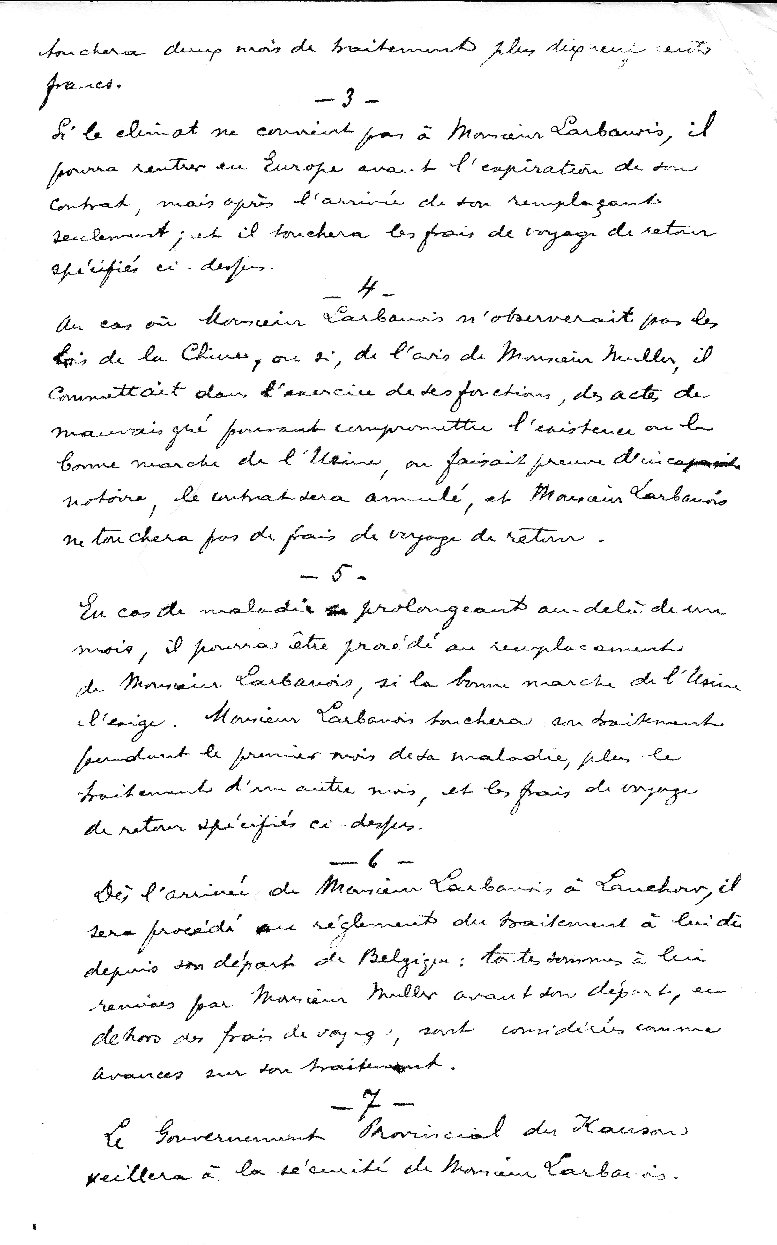 touchera deux mois de traitement plus dix neuf cents
francs.
- 3 -
Si le climat ne convient pas à Monsieur Larbanois, il
pourra rentrer en Europe avant l'expiration de son
contrat, mais après l'arrivée de son remplaçant
seulement; et il touchera les frais de voyage de retour
spécifiés ci-dessus.
- 4 -
Au cas où Monsieur Larbanois n'observerait pas les
lois de la Chine, ou si, de l'avis de Monsieur Muller, il
commettait dans l'exercice de ses fonctions, des actes de
mauvais gré pouvant compromettre l'existence ou la
bonne marche de l'Usine, ou faisait preuve d'incapacité
notoire, le contrat sera annulé, et Monsieur Larbanois
ne touchera pas de frais de voyage de retour.
- 5 -
En cas de maladie se prolongeant au-delà de un
mois, il pourra être procédé au remplacement
de Monsieur Larbanois, si la bonne marche de l'Usine
l'exige. Monsieur Larbanois touchera son traitement
pendant le premier mois de sa maladie, plus le
traitement d'un autre mois, et les frais de voyage
de retour spécifiés ci-dessus.
- 6 -
Dès l'arrivée de Monsieur Larbanois à Lanchow, il
sera procédé au réglement du traitement à lui dû
depuis son départ de Belgique: toutes sommes à lui
remises par Monsieur Muller avant son départ, en
dehors des frais de voyage, sont considérées comme
avances sur son traitement.
- 7 -
Le Gouvernement Provincial du Kansou
veillera à la sécurité de Monsieur Larbanois.